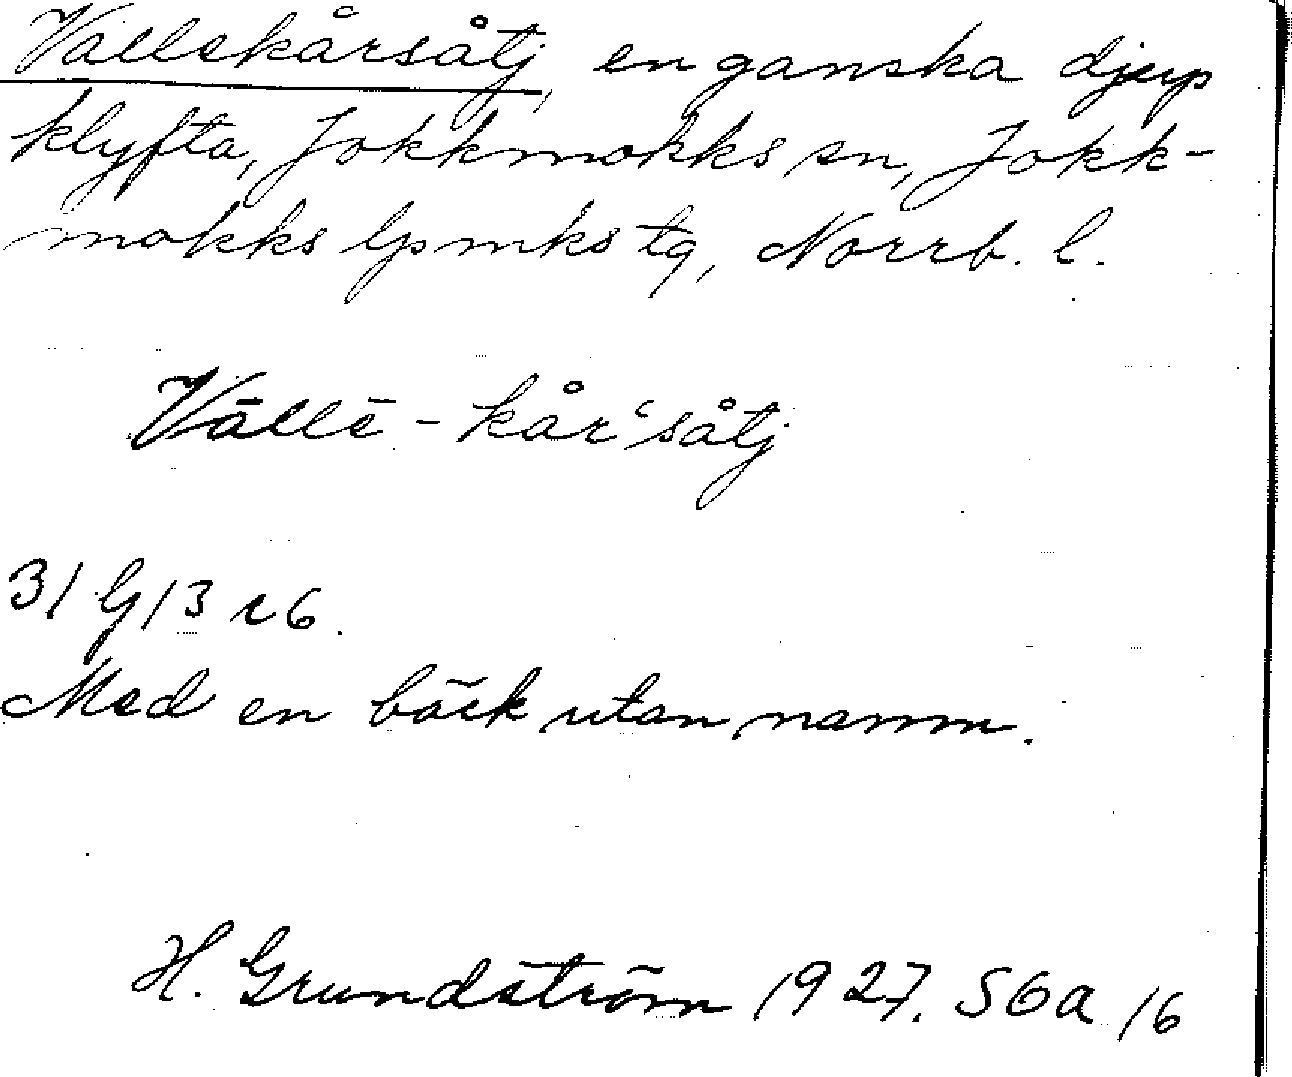 Vallekårsåtj, en ganska djup
klyfta, Jokkmokks sn, Jokk-
mokks lpmks tg, Norrb. l.
Vāllē - kår‘såtj
31 G 13 r 6.
Med en bäck utan namn.
H. Grundström 1927. S6a 16